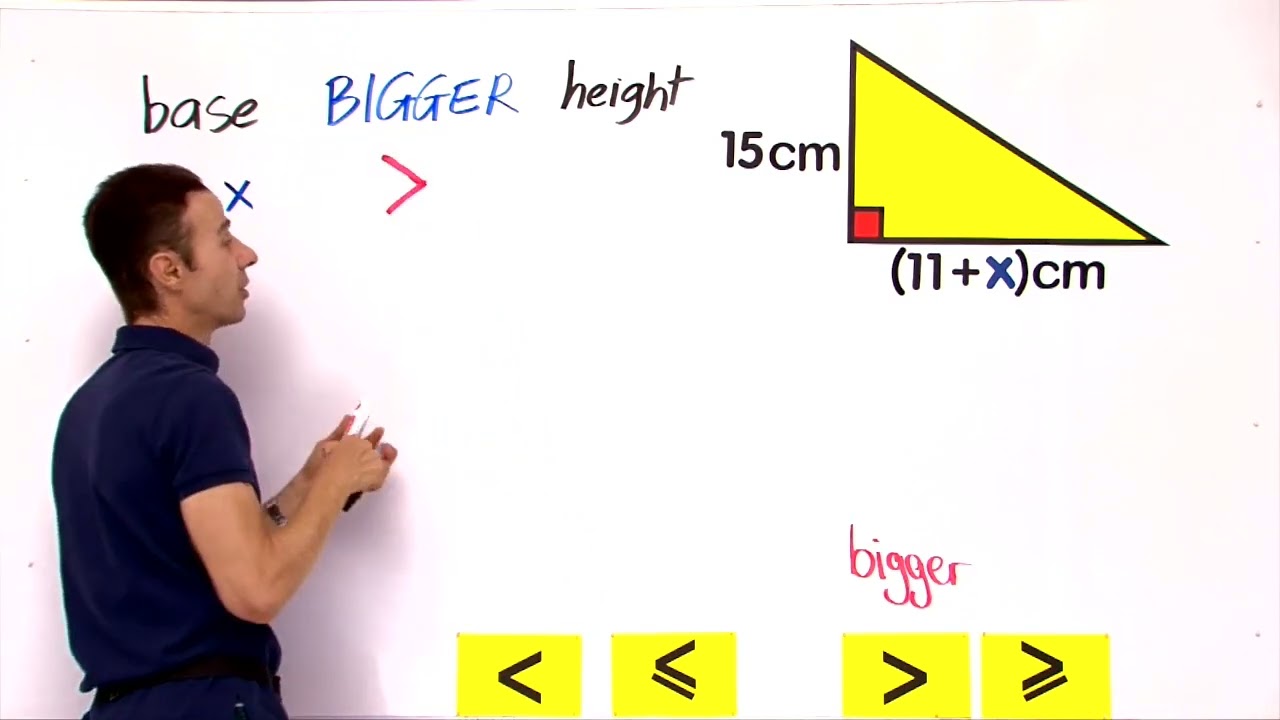 base BIGGER height
x >
15cm
(11+x)cm
bigger
< ≤ > ≥